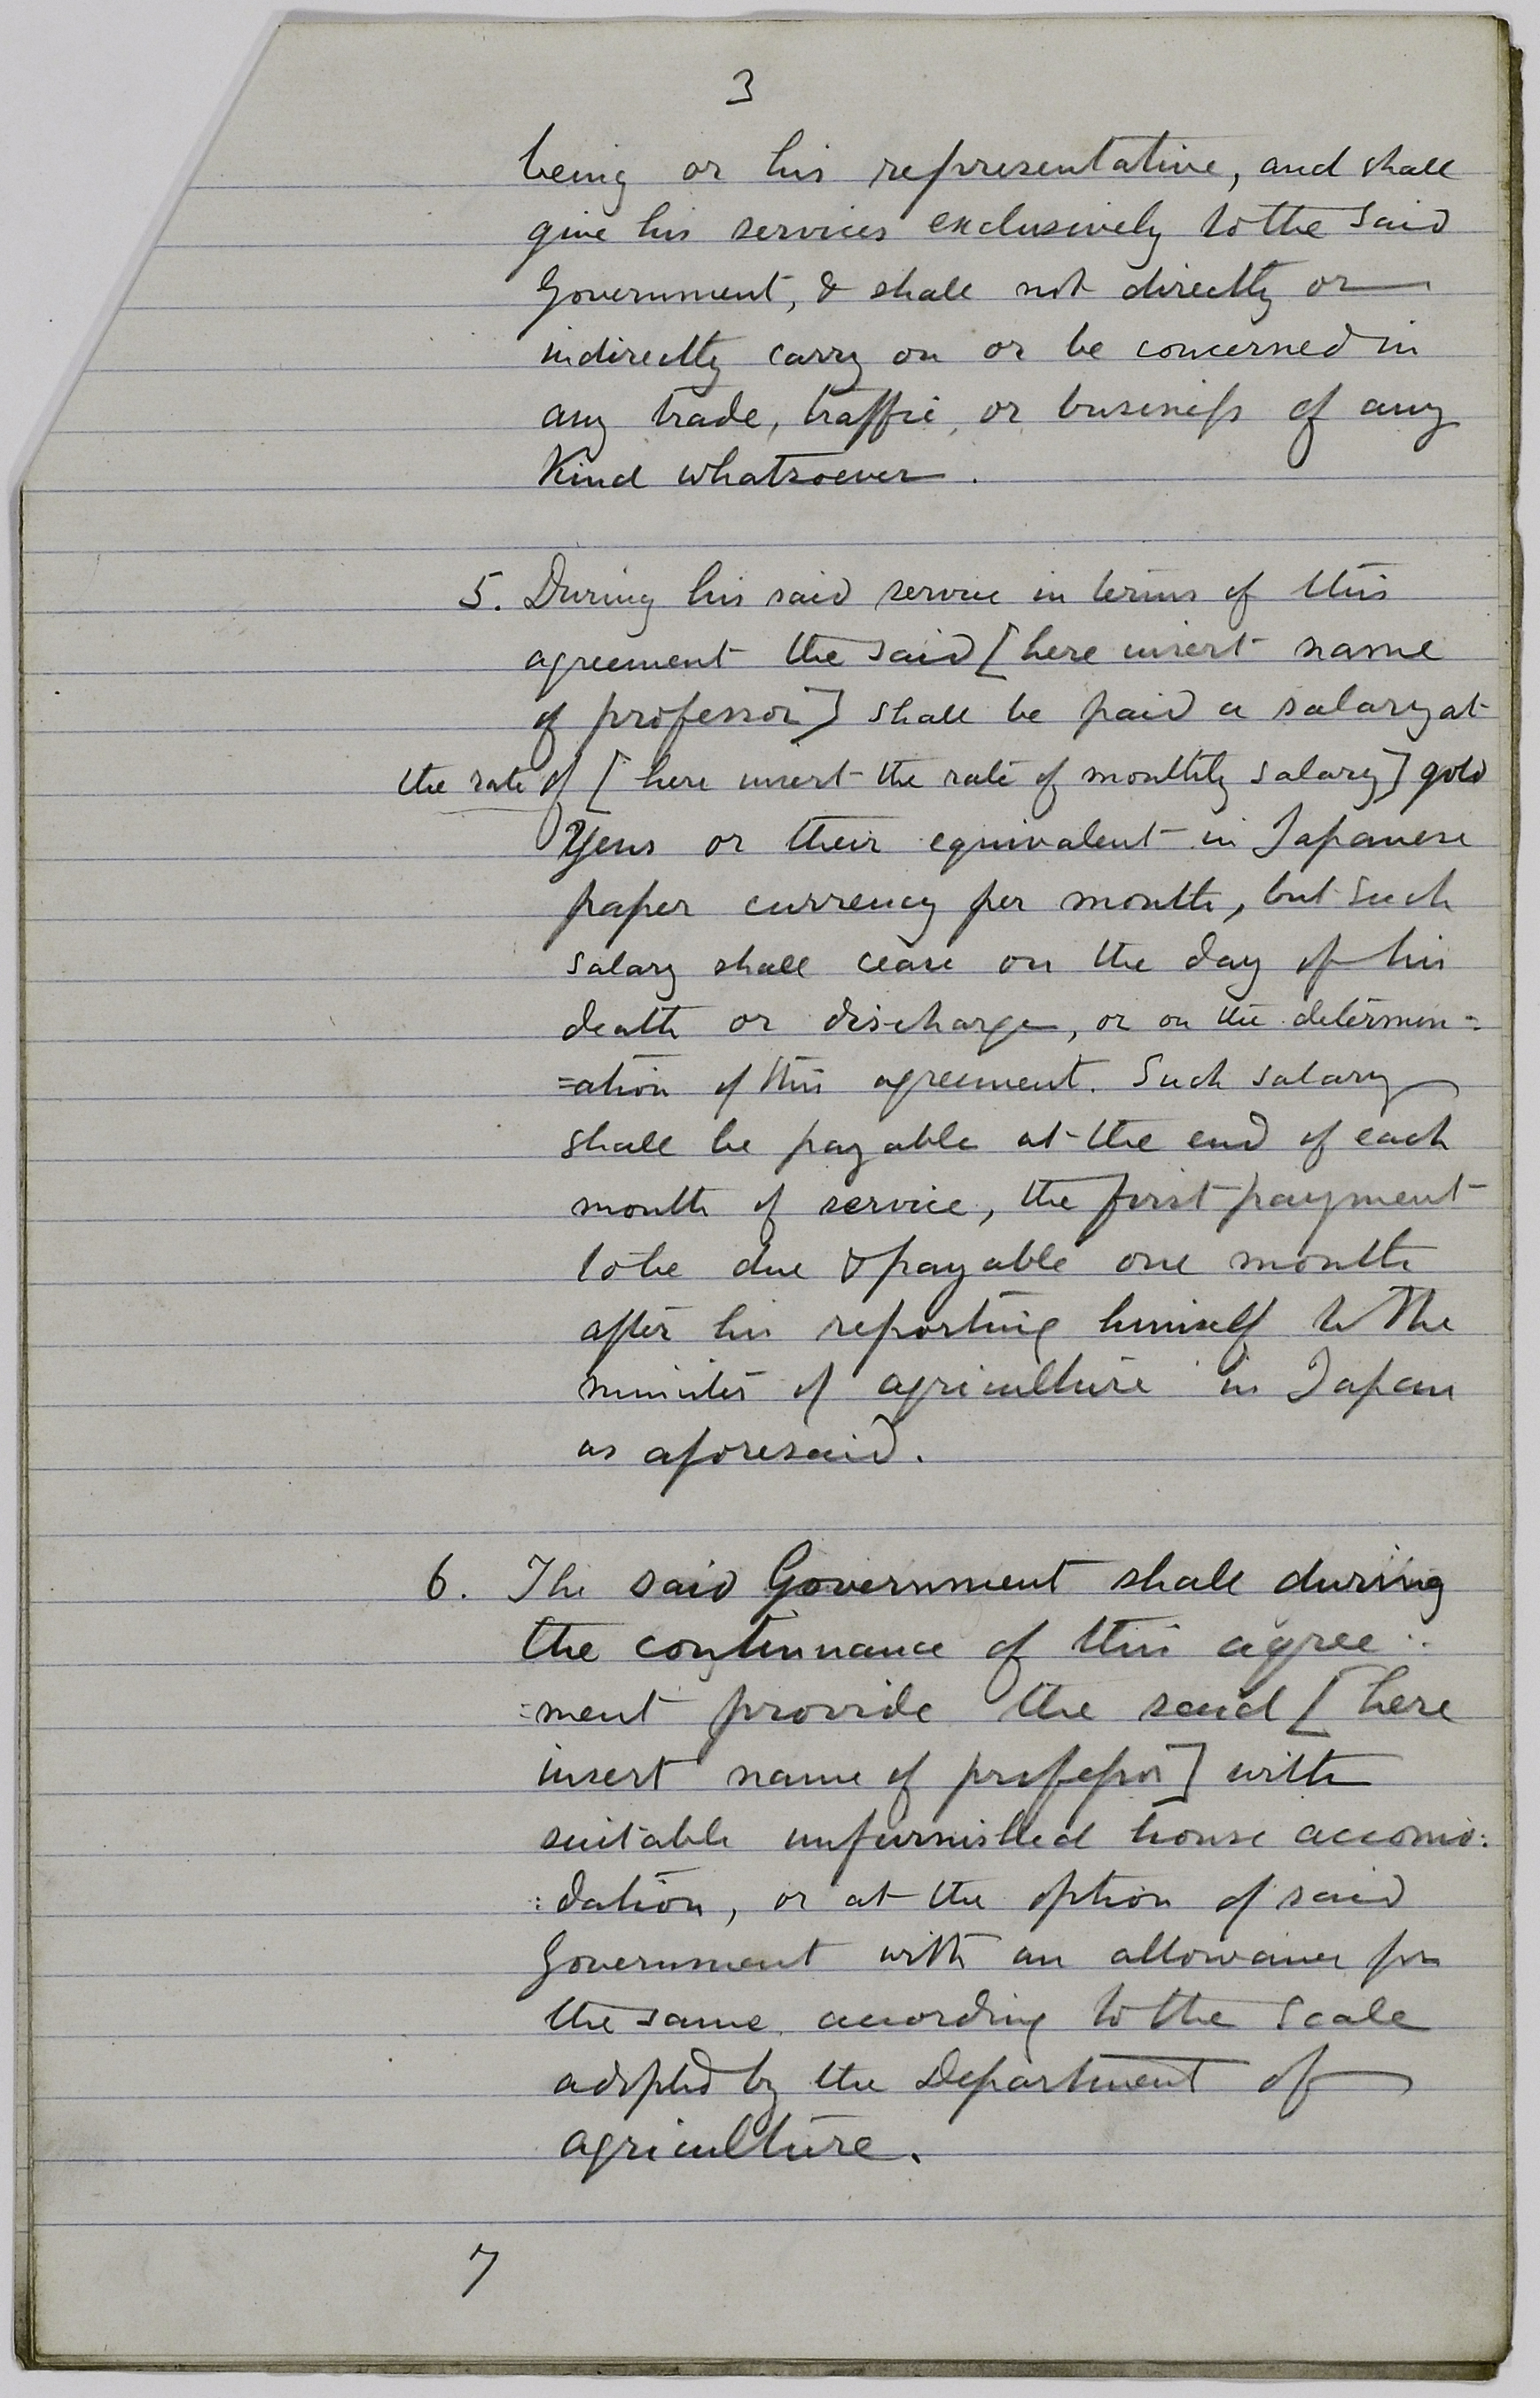 3
being or his representative, and shall
give his services exclusively to the said
Government, & shall not directly or
indirectly carry on or be concerned in
any trade, traffic, or business of any
Kind whatsoever.
5. During his said service in terms of this
agreement the said [here insert name
of professor] shall be paid a salary at
the rate of [here insert the rate of monthly salary] gold
Yens or their equivalent in Japanese
paper currency per month, but such
salary shall cease on the day of his
death or discharge, or on the determin=
=ation of this agreement. Such salary
shall be payable at the end of each
month of service, the first payment
to be due & payable one month
after his reporting himself to the
minister of agriculture in Japan
as aforesaid.
6. The said Government shall during
the continuance of this agree:
=ment provide the said [here
insert name of professor] with
suitable unfurnished house accomo:
:dation, or at the option of said
Government with an allowance for
the same according to the scale
adopted by the Department of
agriculture.
7